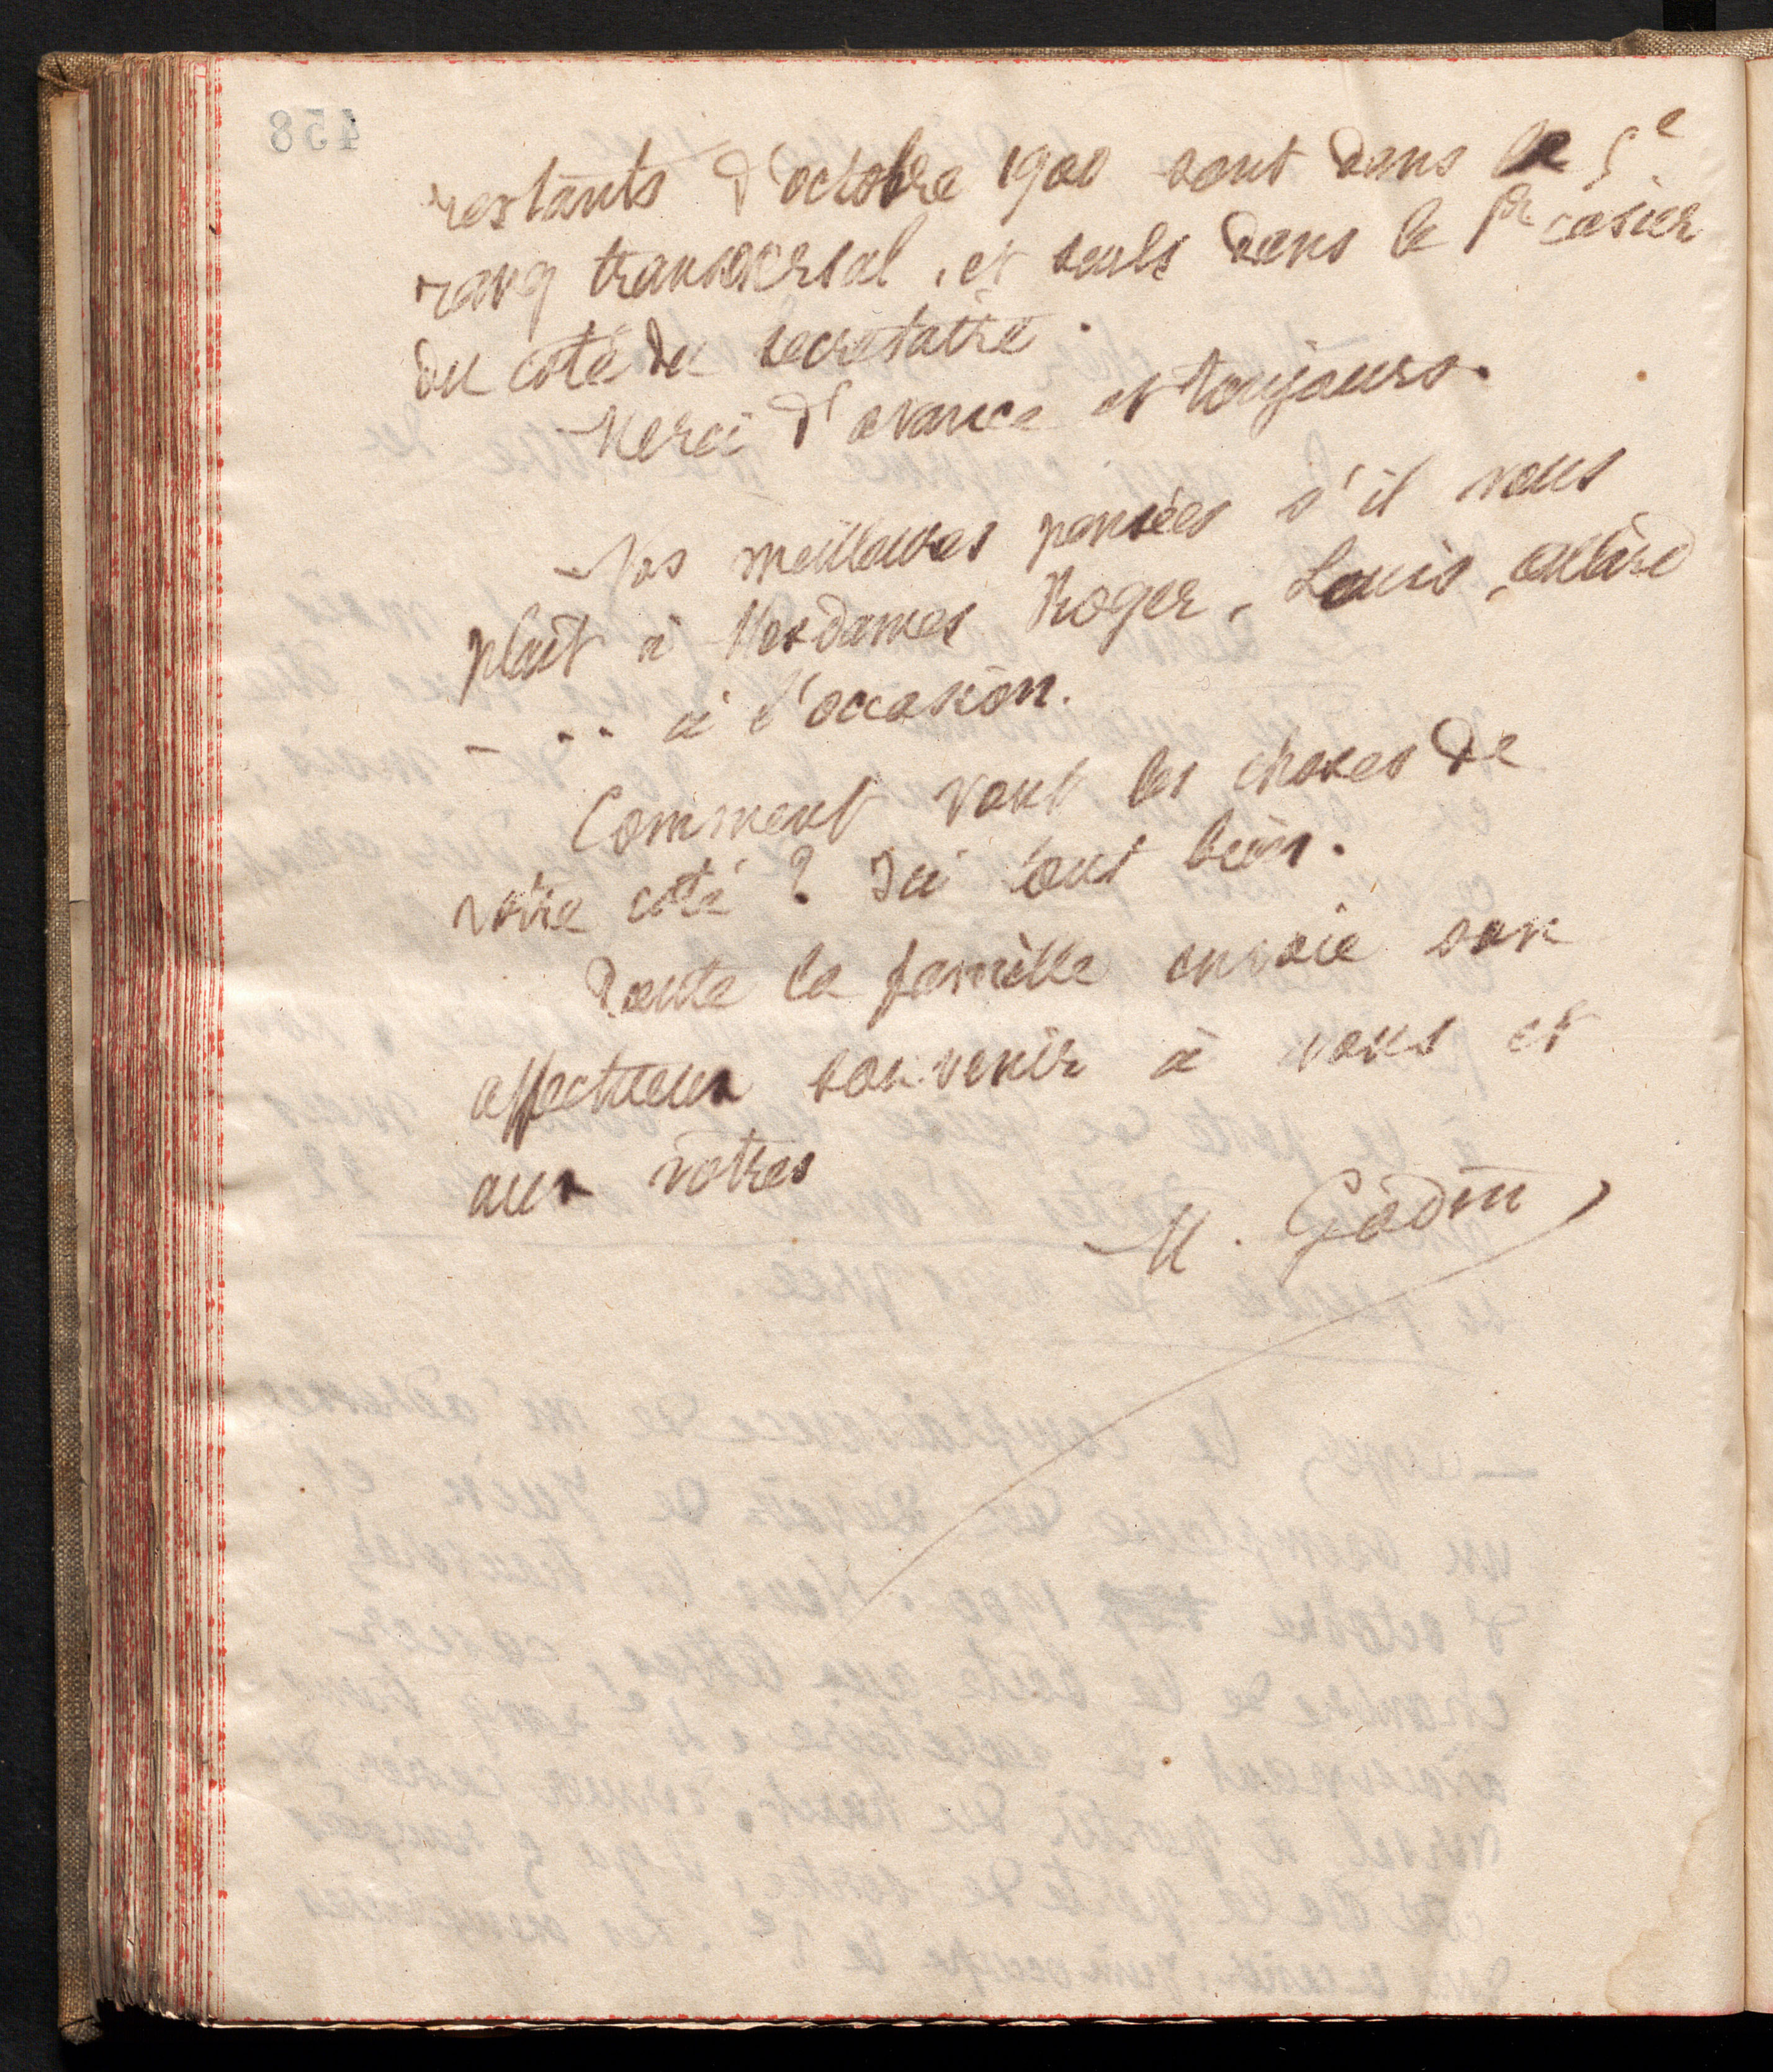 458
restants d'octobre 1900 sont dans le 5e
rang transversal, et seuls dans le 1er casier
du côté du secretaire.
Merci d'avance et toujours.
Nos meilleures pensées s'il vous
plait à Mesdames Roger, Louis, Allart
- .. à l'occasion.
Comment vont les choses de
votre côté ? Ici tout bien.
Toute la famille envoie son
affectueux souvenir à vous et
aux vôtres
M. Godin